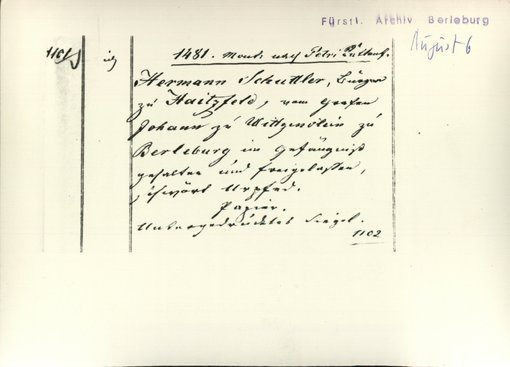 Fürstl. Archiv Berleburg
August 6
1481. Mont. nach Petri
Hermann Schuttler, Bürger
zu Haitzfeld, vom Grafen
Johann zu Wittgenstein zu
Berleburg im Gefängniß
gehalten und freigelassen,
schwört Urpfed.
Papier.
Untergedrücktes Siegel.
1102